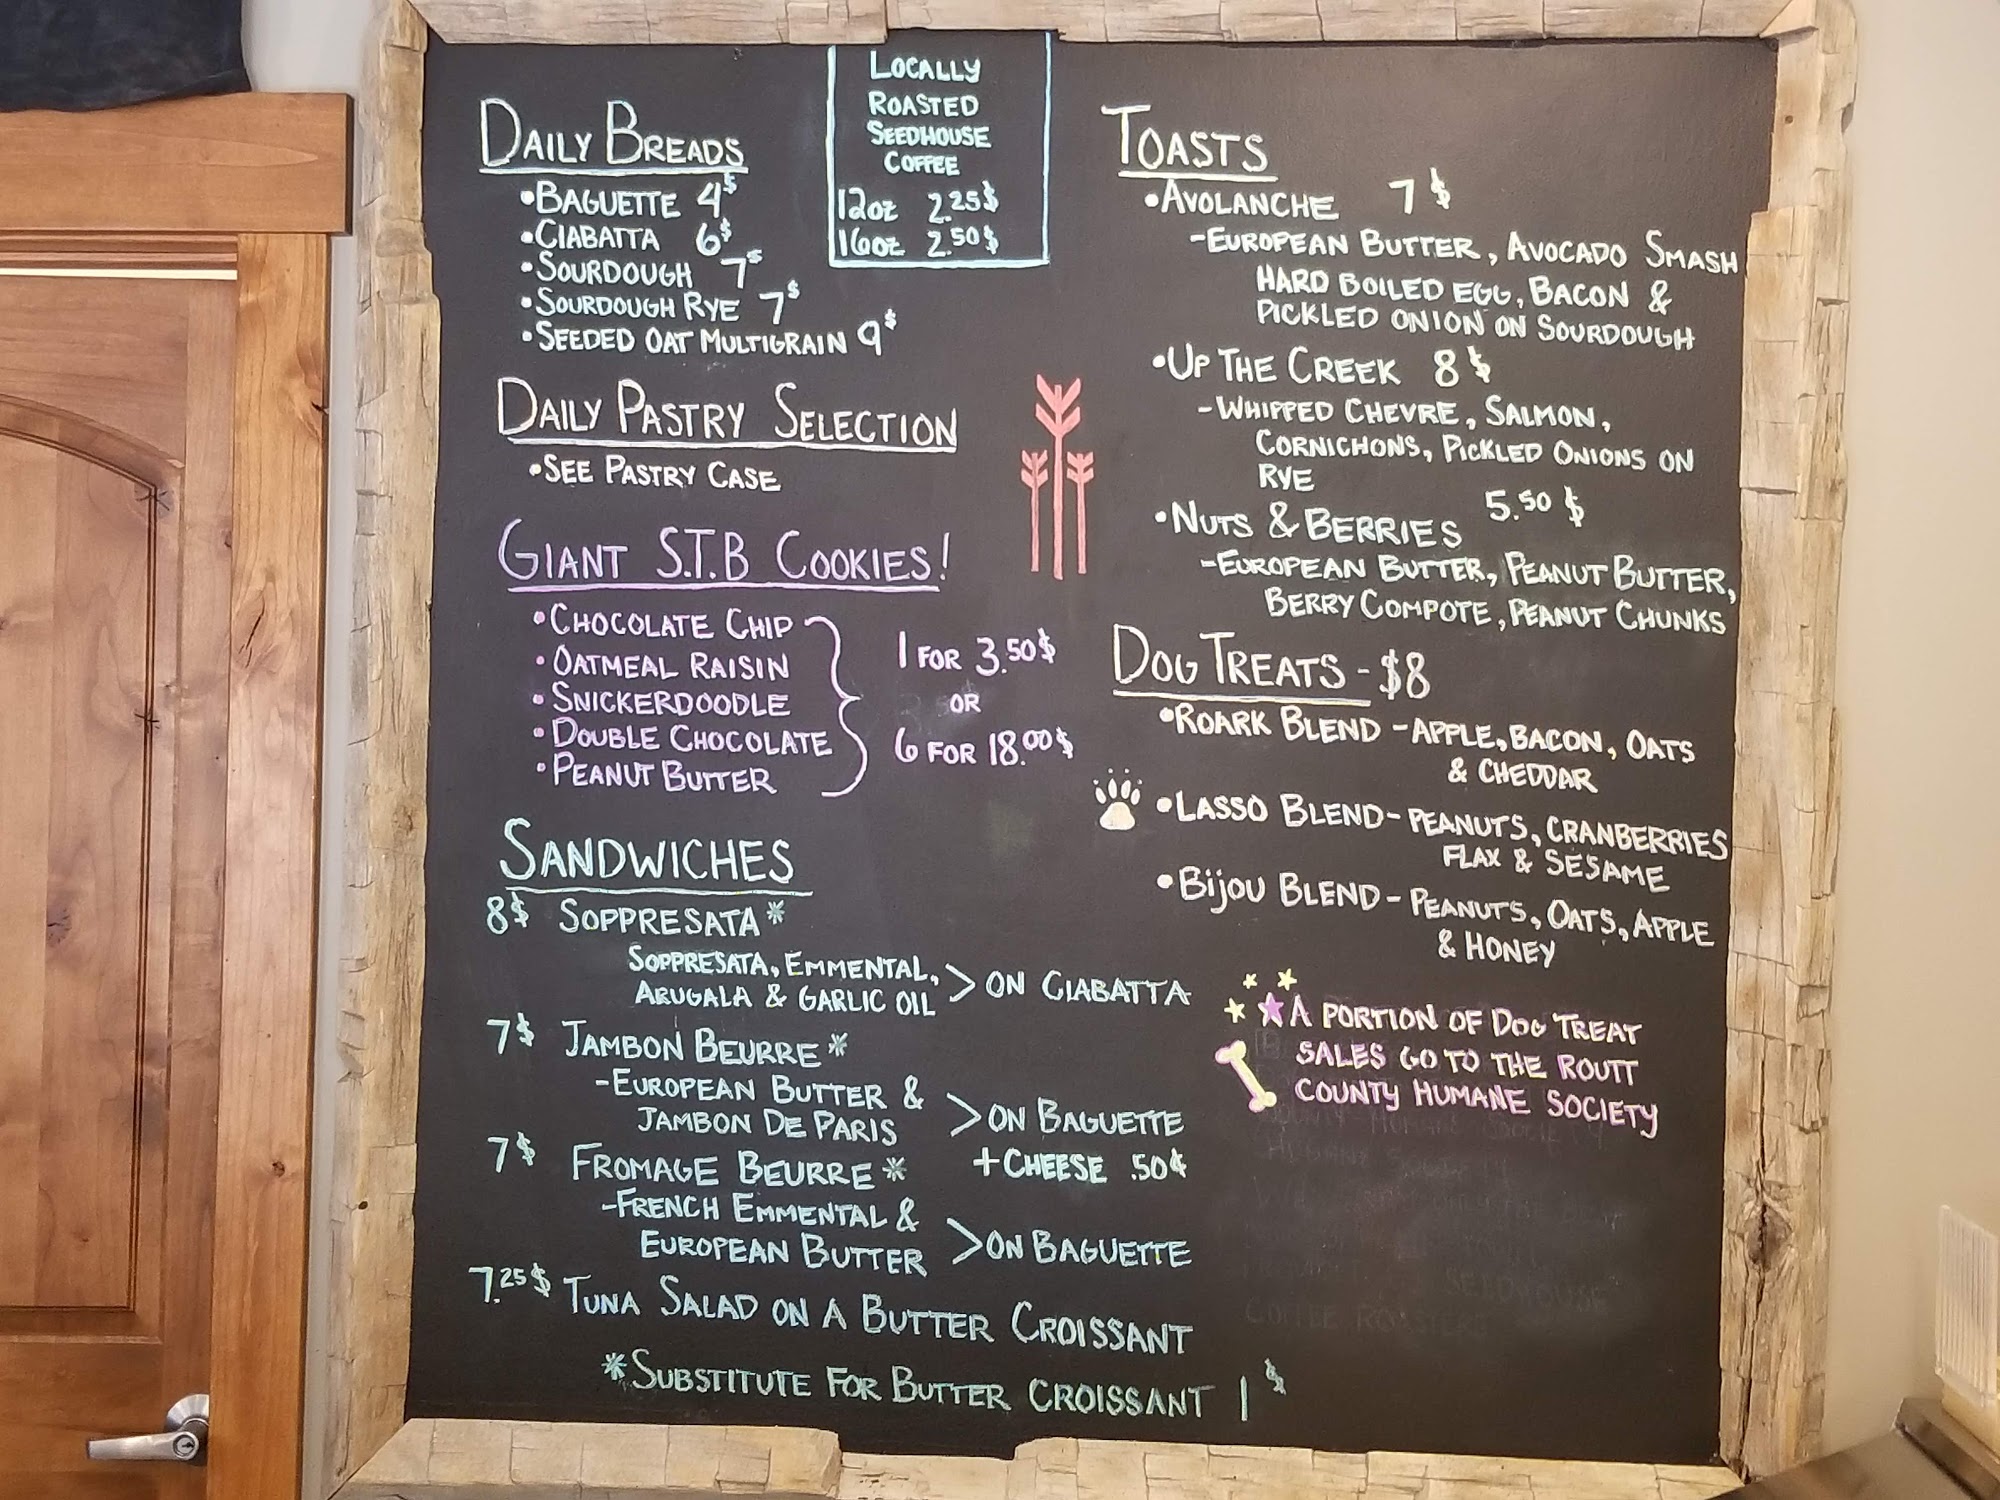 Locally
Roasted
Seedhouse
Coffee
12oz 2.25$
16oz 2.50$
Daily Breads
•Baguette 4$
•Ciabatta 6$
•Sourdough 7$
•Sourdough Rye 7$
•Seeded Oat Multigrain 9$
Daily Pastry Selection
•See Pastry Case
Giant S.T.B Cookies!
•Chocolate Chip
•Oatmeal Raisin
•Snickerdoodle
•Double Chocolate
•Peanut Butter
1 for 3.50$
or
6 for 18.00$
Sandwiches
8$ Soppresata*
Soppresata, Emmental,
Arugala & Garlic Oil > on Ciabatta
7$ Jambon Beurre*
-European Butter &
Jambon De Paris > on Baguette
+Cheese .50¢
7$ Fromage Beurre*
-French Emmental &
European Butter > on Baguette
7.25$ Tuna Salad on a Butter Croissant
*Substitute for Butter Croissant 1$
Toasts
•Avolanche 7$
-European Butter, Avocado Smash
Hard Boiled Egg, Bacon &
Pickled Onion on Sourdough
•Up The Creek 8$
-Whipped Chevre, Salmon,
Cornichons, Pickled Onions on
Rye
•Nuts & Berries 5.50$
-European Butter, Peanut Butter,
Berry Compote, Peanut Chunks
Dog Treats - $8
•Roark Blend - Apple, Bacon, Oats
& Cheddar
•Lasso Blend - Peanuts, Cranberries
Flax & Sesame
•Bijou Blend - Peanuts, Oats, Apple
& Honey
A portion of Dog Treat
sales go to the Routt
County Humane Society